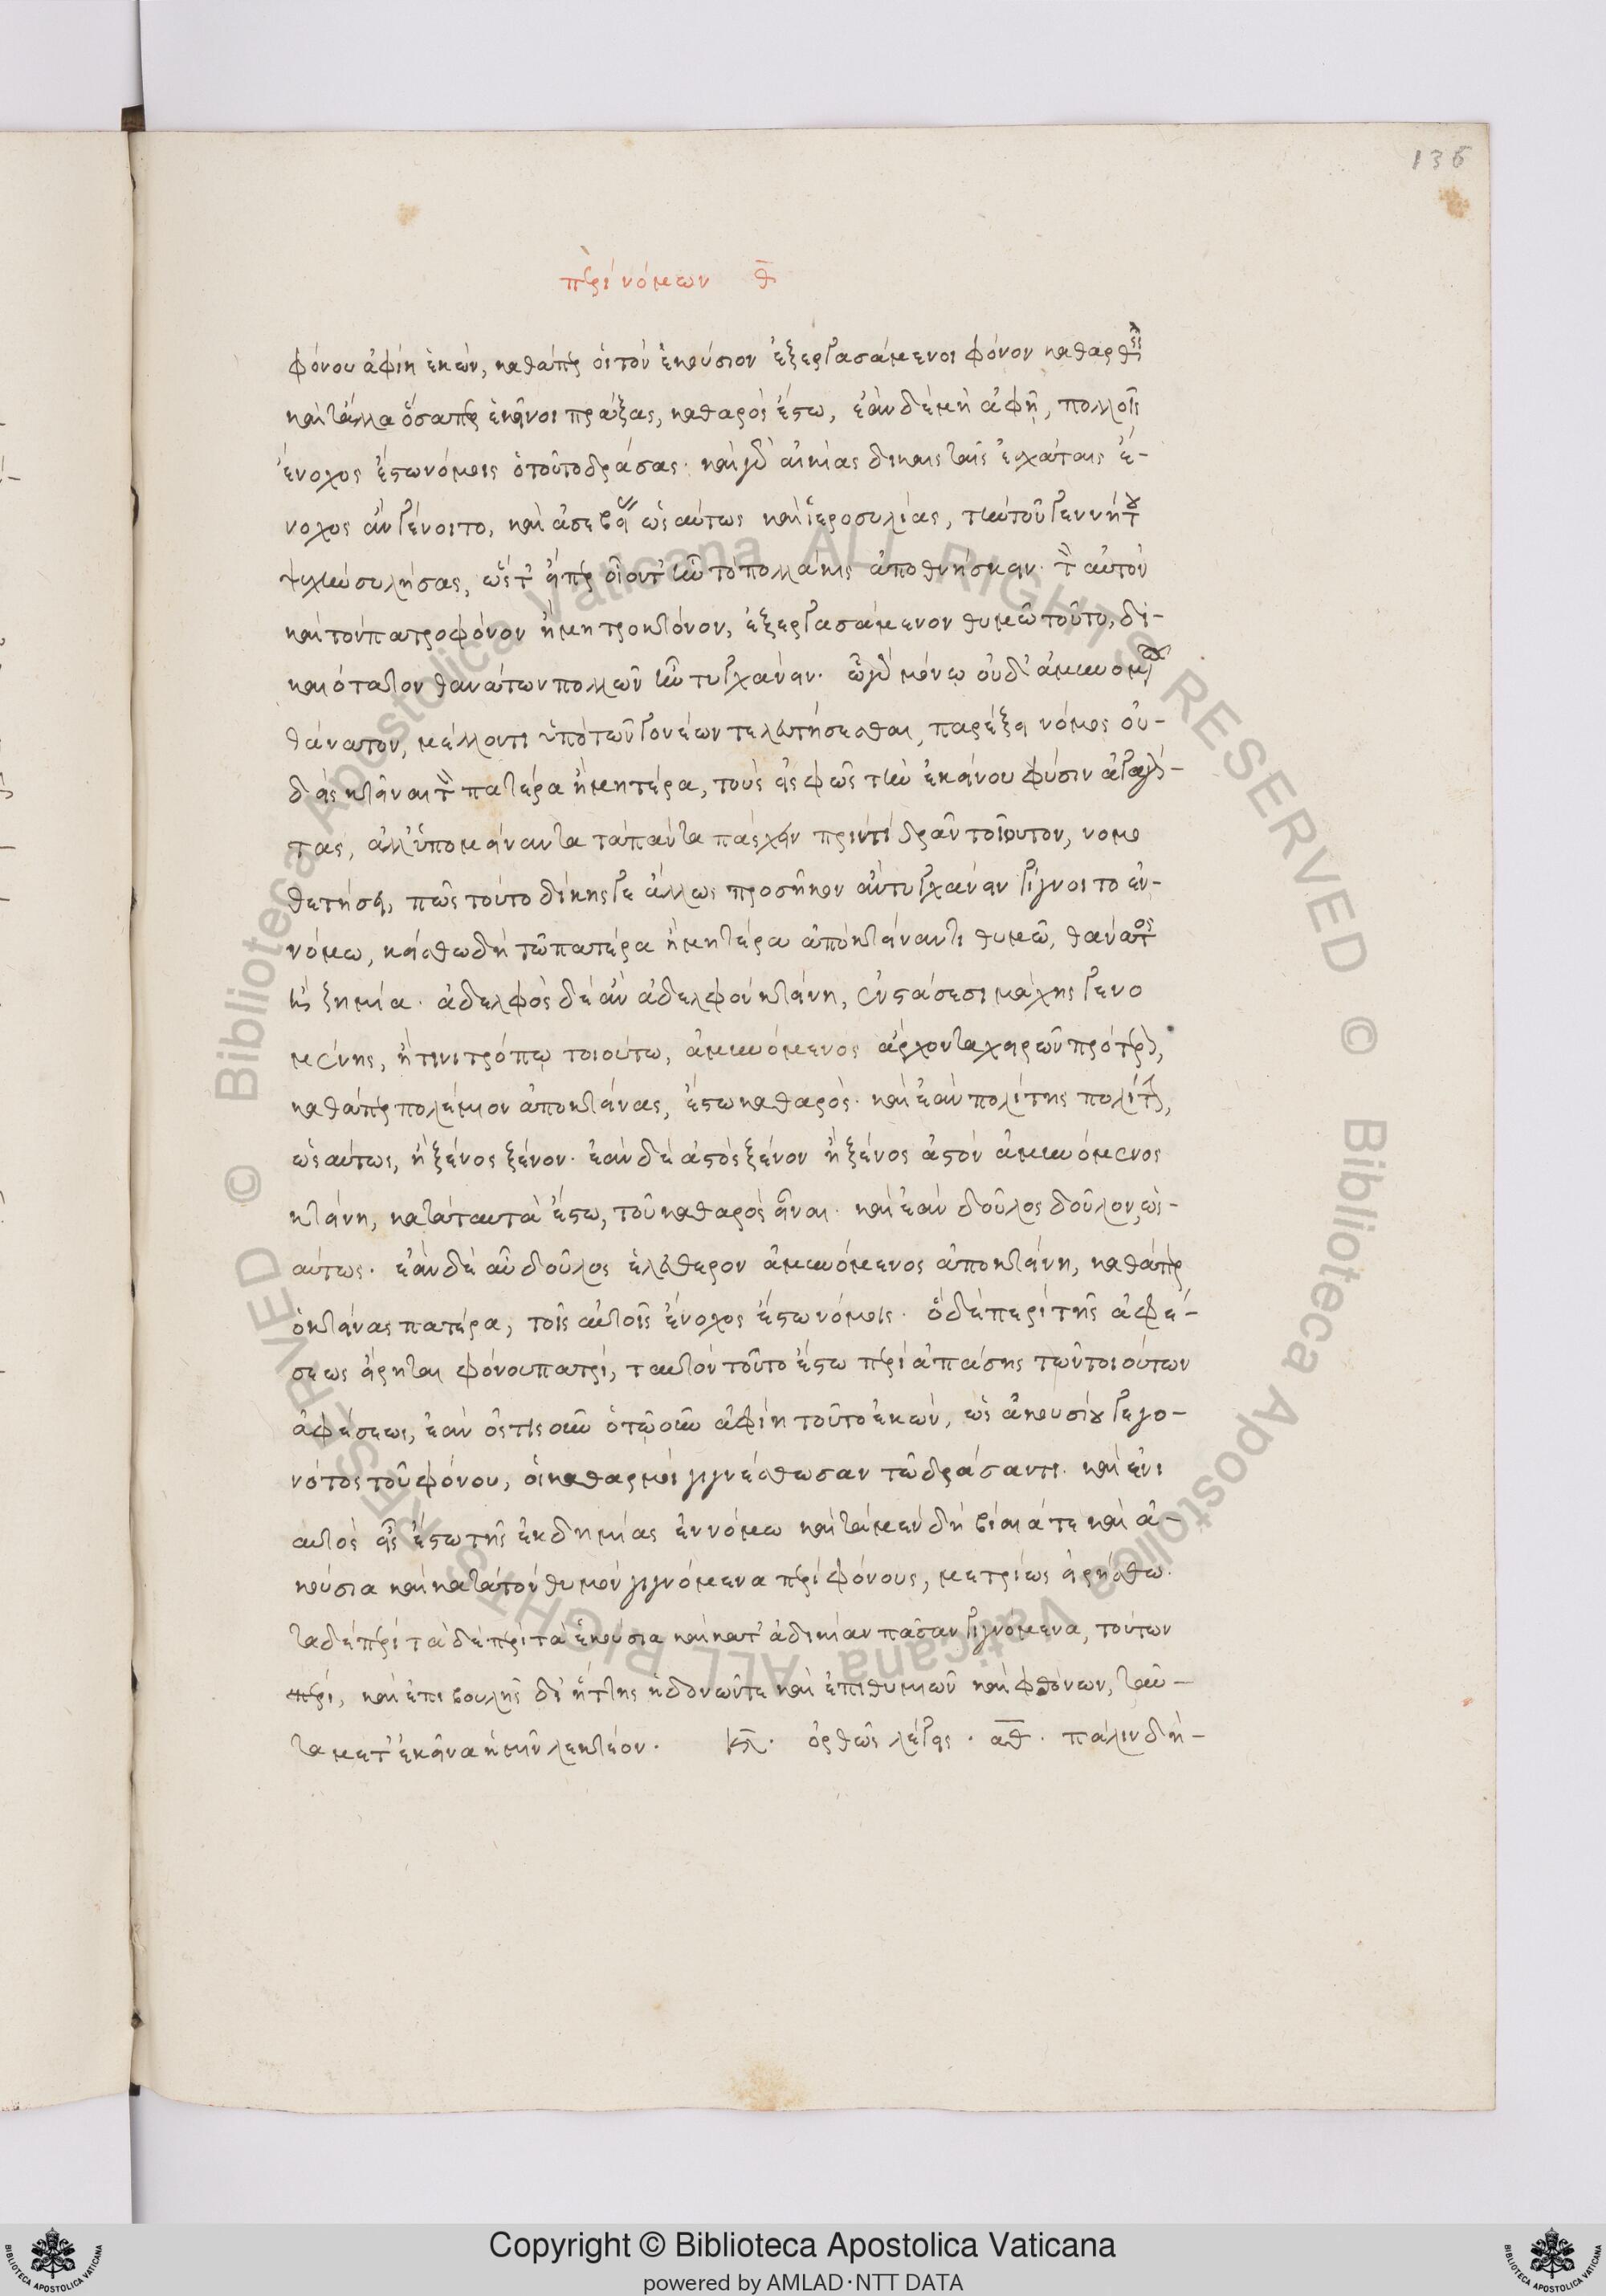 136
περὶ νόμων θ̄
φόνου ἀφίη ἑκὼν, καθάπερ οἱ τὸν ἀκούσιον ἐξεργασάμενοι φόνον καθαρθεὶς
καὶ τἄλλα ὅσαπερ ἐκεῖνοι πράξας, καθαρὸς ἔστω, ἐὰν δὲ μὴ ἀφῇ, πολλοῖς
ἔνοχος ἔστω νόμοις ὁ τοῦτο δράσας· καὶ γὰρ αἰκίας δίκαις ταῖς ἐσχάταις ἔ-
νοχος ἂν γένοιτο, καὶ ἀσεβείας ὡσαύτως καὶ ἱεροσυλίας, τὴν τοῦ γεννήτου
ψυχὴν συλήσας, ὥστ' εἴπερ οἷον τ' ἦν τὸ πολλάκις ἀποθνήσκειν· τὸν αὐτὸν
καὶ τὸν πατροφόνον ἢ μητροκτόνον, ἐξεργασάμενον θυμῶ τοῦτο, δι-
καιότατον θανάτων πολλῶν ἦν τυγχάνειν· ᾧ γὰρ μόνῳ οὐδ' ἀμυνομένῳ
θάνατον, μέλλοντι ὑπὸ τῶν γονέων τελευτήσεσθαι, παρέξει νόμος οὐ-
δεὶς κτεῖναι τὸν πατέρα ἢ μητέρα, τοὺς εἰς φῶς τὴν ἐκείνου φύσιν ἀγαγόν-
τας, ἀλλ' ὑπομείναντα τὰ πάντα πάσχειν πρίν τι δρᾶν τοιοῦτον, νομο
θετήσει, πῶς τούτο δίκης γε ἄλλως προσῆκον ἂν τυγχάνειν γίγνοιτο ἐν-
νόμω, κείσθω δὴ τῶ πατέρα ἢ μητέρα ἀποκτείναντι θυμῶ, θάνατος
ἡ ζημία· ἀδελφὸς δὲ ἂν ἀδελφὸν κτείνη, ἐν στάσεσι μάχης γενο
μένης, ἤ τινι τρόπῳ τοιούτω, ἀμυνόμενος ἄρχοντα χειρῶν πρότερον,
καθάπερ πολέμιον ἀποκτείνας, ἔστω καθαρὸς· καὶ ἐὰν πολίτης πολίτην,
ὡσαύτως, ἢ ξένος ξένον· ἐὰν δὲ ἀστὸς ξένον ἢ ξένος ἀστὸν ἀμυνόμενος
κτείνη, κατὰ ταυτὰ ἔστω, τοῦ καθαρὸς εἶναι· καὶ ἐὰν δοῦλος δοῦλον, ὡς-
αύτως· ἐὰν δὲ αὖ δοῦλος ἐλεύθερον ἀμυνόμενος ἀποκτείνη, καθάπερ
ὁ κτείνας πατέρα, τοῖς αὐτοῖς ἔνοχος ἔστω νόμοις· ὃ δὲ περὶ τῆς ἀφέ-
σεως εἴρηται φόνου πατρὶ, ταυτὸν τοῦτο ἔστω περὶ ἁπάσης τῶν τοιούτων
ἀφέσεως, ἐὰν ὁστισοῦν ὁτῳοῦν ἀφίη τοῦτο ἑκὼν, ὡς ἀκουσίου γεγο-
νότος τοῦ φόνου, οἱ καθαρμοὶ γιγνέσθωσαν τῶ δράσαντι· καὶ ἐνι
αυτὸς εἷς ἔστω τῆς ἐκδημίας ἐν νόμω καὶ τὰ μὲν δὴ βίαιά τε καὶ ἀ-
κούσια καὶ κατὰ τὸν θυμὸν γιγνόμενα περὶ φόνους, μετρίως εἰρήσθω·
τὰ δὲ περὶ τὰ δὲ περὶ τὰ ἑκούσια καὶ κατ' ἀδικίαν πᾶσαν γιγνόμενα, τούτων
πέρι, καὶ ἐπιβουλῆς δι' ἥττης ἡδονῶν τε καὶ ἐπιθυμιῶν καὶ φθόνων, ταῦ-
τα μετ' ἐκεῖνα ἡμῖν λεκτέον· κλ. ὀρθῶς λέγεις. αθ. πάλιν δὴ-
Copyright © Biblioteca Apostolica Vaticana
powered by AMLAD·NTT DATA
© Biblioteca Apostolica Vaticana ALL RIGHTS RESERVED
© Biblioteca Apostolica Vaticana ALL RIGHTS RESERVED
BIBLIOTECA APOSTOLICA VATICANA
BIBLIOTECA APOSTOLICA VATICANA